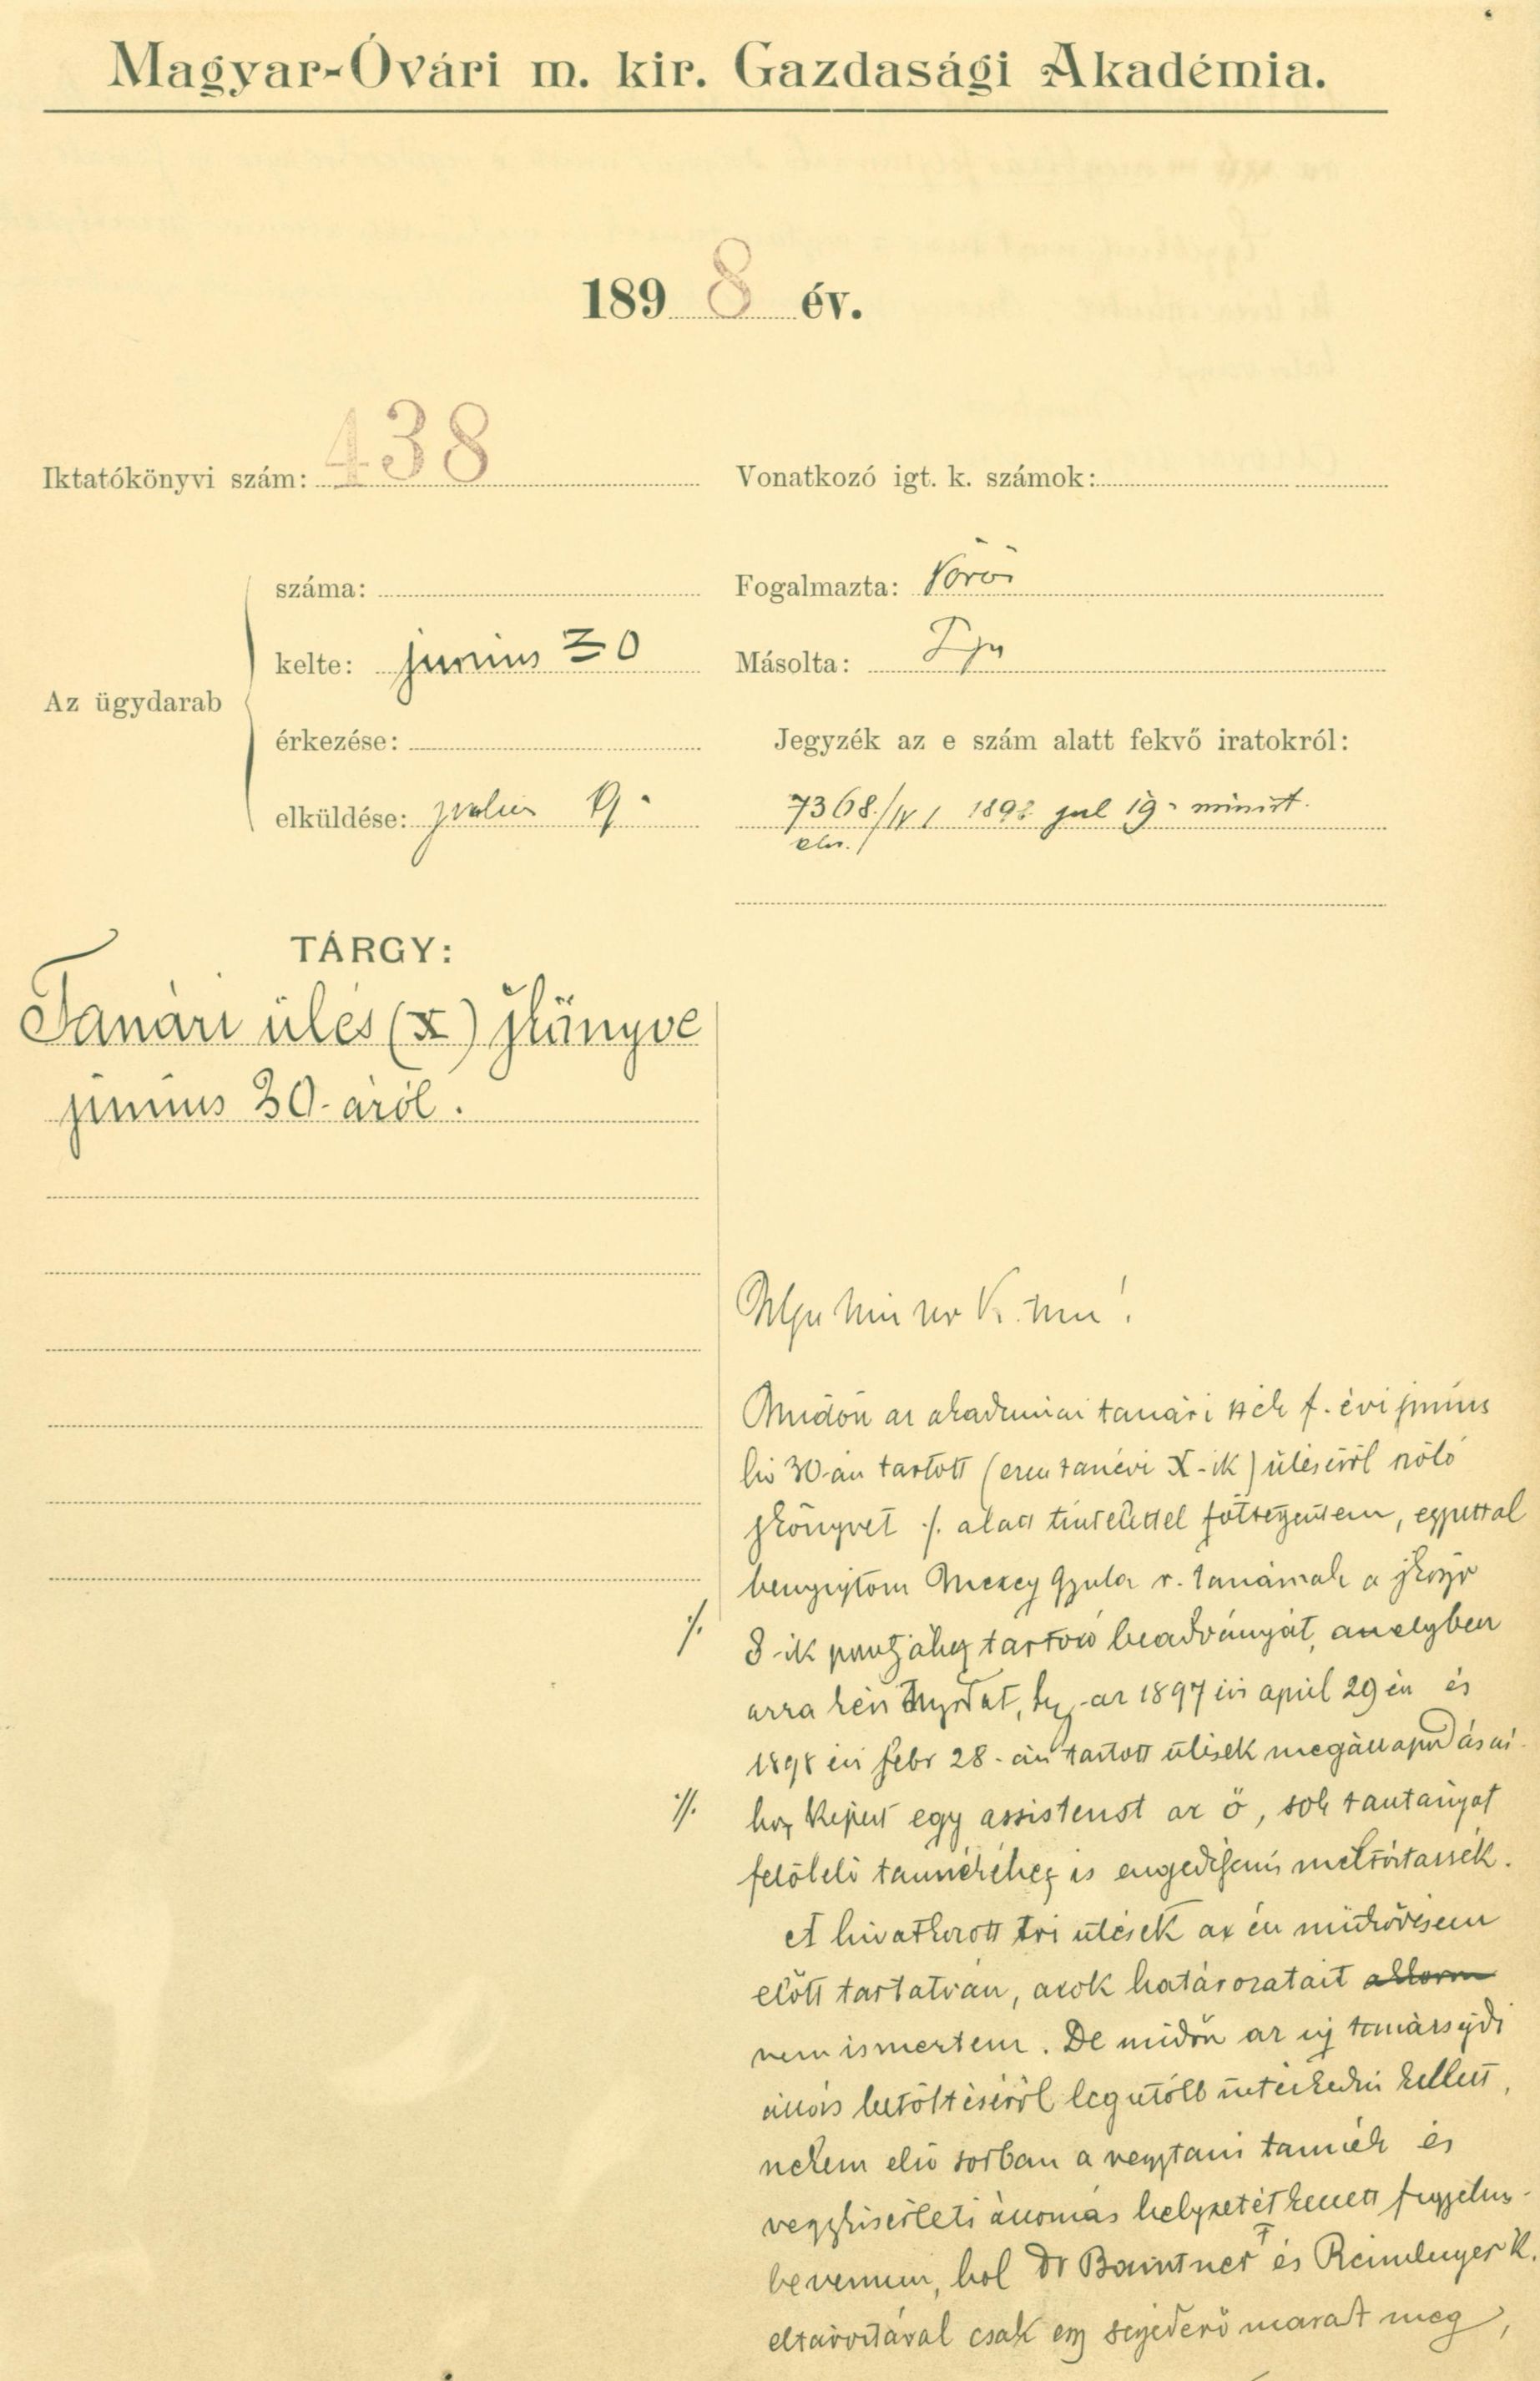 Magyar-Óvári m. kir. Gazdasági Akadémia.
1898 év.
Iktatókönyvi szám: 438
Vonatkozó igt. k. számok:
Az ügydarab
száma:
kelte: junius 30
érkezése:
elküldése: julius 9.
Fogalmazta: Vörös
Másolta:
Jegyzék az e szám alatt fekvő iratokról:
7368./IV 1 1898 jul 19 minist.
TÁRGY:
Tanári ülés (X) jkönyve
junius 30-áról.
Midőn az akademiai tanári f. évi junius
hó 30-án tartott (ezen tanévi X-ik) üléséről szóló
jkönyvet ·/. alatt tisztelettel fölterjesztem, egyuttal
benyujtom Mezey Gyula r. tanárnak a jkönyv
·/. 8-ik pontjához tartozó beadványát, amelyben
arra kér, hogy az 1897 évi april 29 én és
1898 évi febr 28-án tartott ülések megállapodásai-
·//. hoz képest egy assistenst az ő, sok tantárgyat
felölelő tanszékéhez is engedélyezni méltóztassék.
A hivatkozott ülések az én müködésem
előtt tartatván, azok határozatait
nem ismertem. De midőn az uj tanársegédi
állás betöltéséről legutóbb intézkedni kellett,
nekem első sorban a vegytani tanszék és
vegykisérleti állomás helyzetét kellett figyelem-
be vennem, hol Dr Baintner F és K.
eltávoztával csak egy segéderő maradt meg,